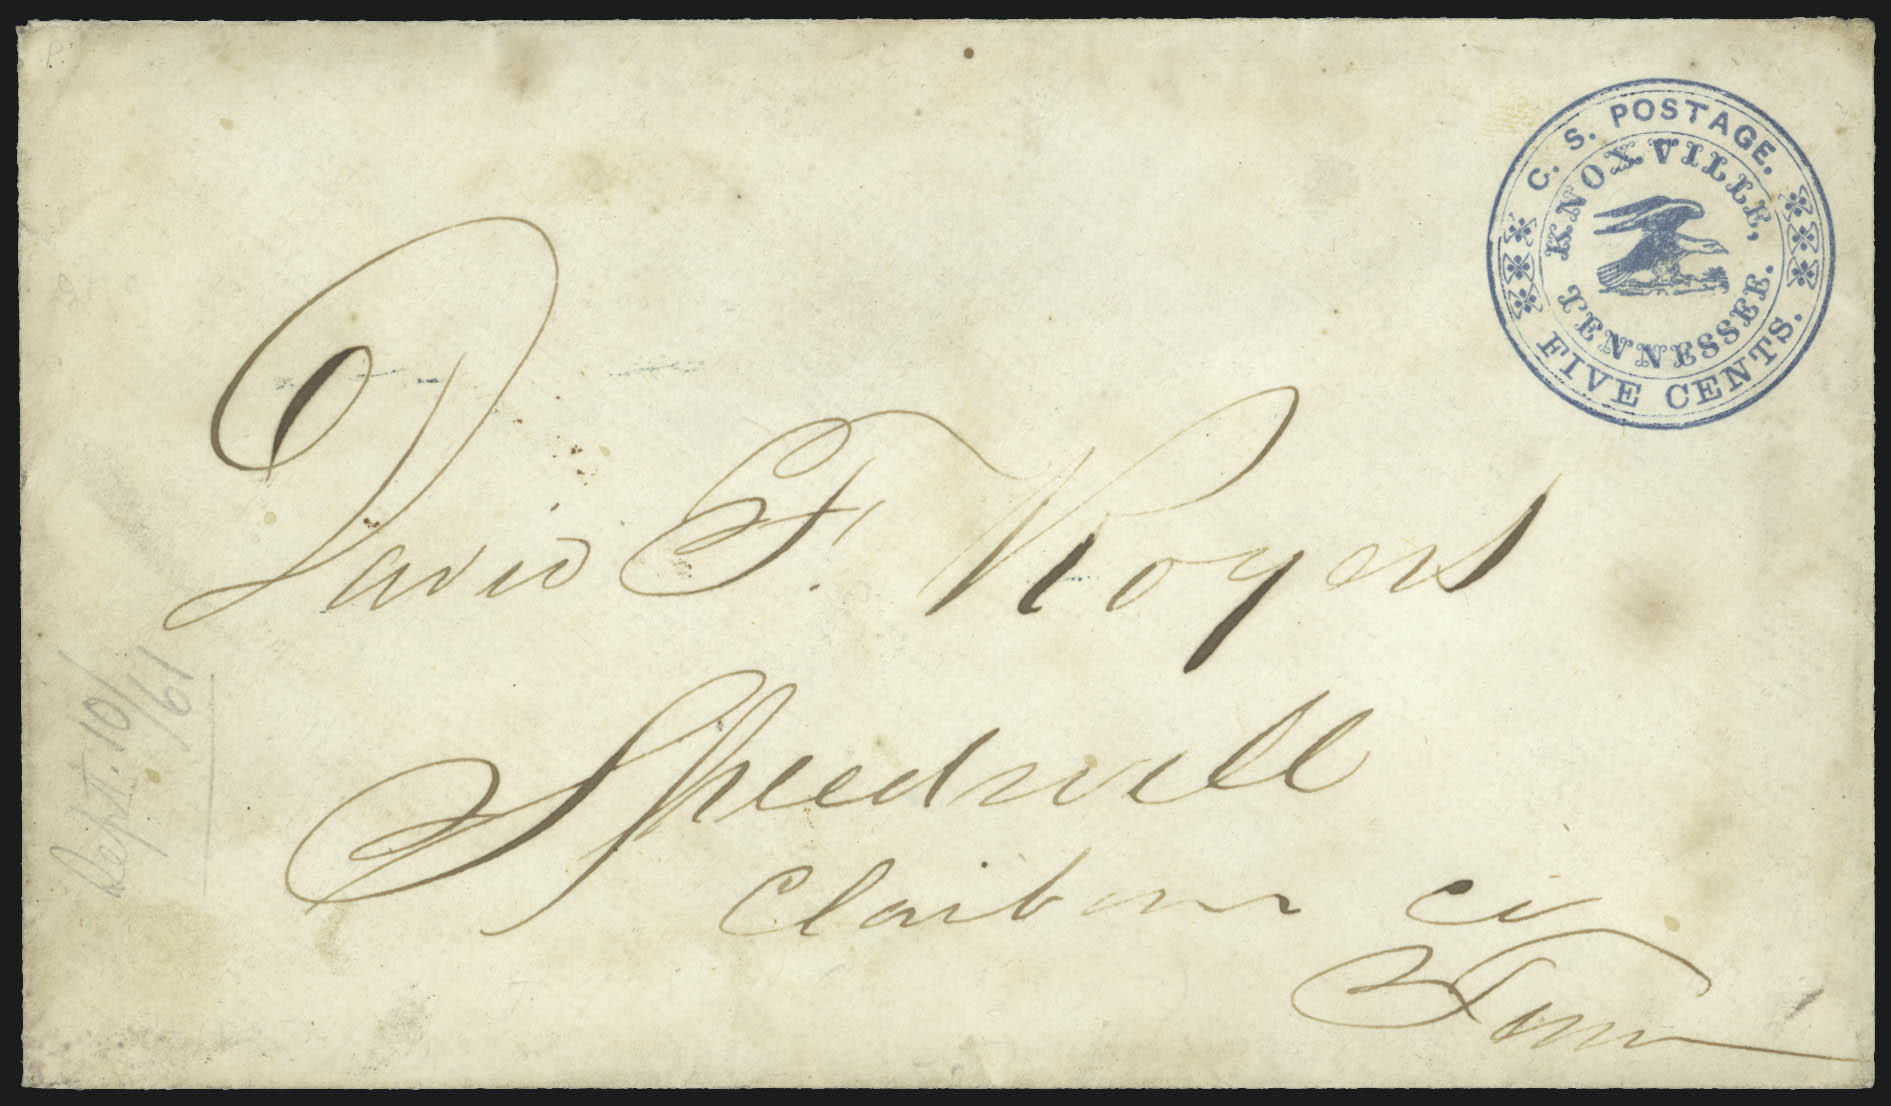 C. S. POSTAGE.
KNOXVILLE,
TENNESSEE.
FIVE CENTS.
David F. Royers
Speedwell
Claiborne Co
Tenn
Sept. 10/61